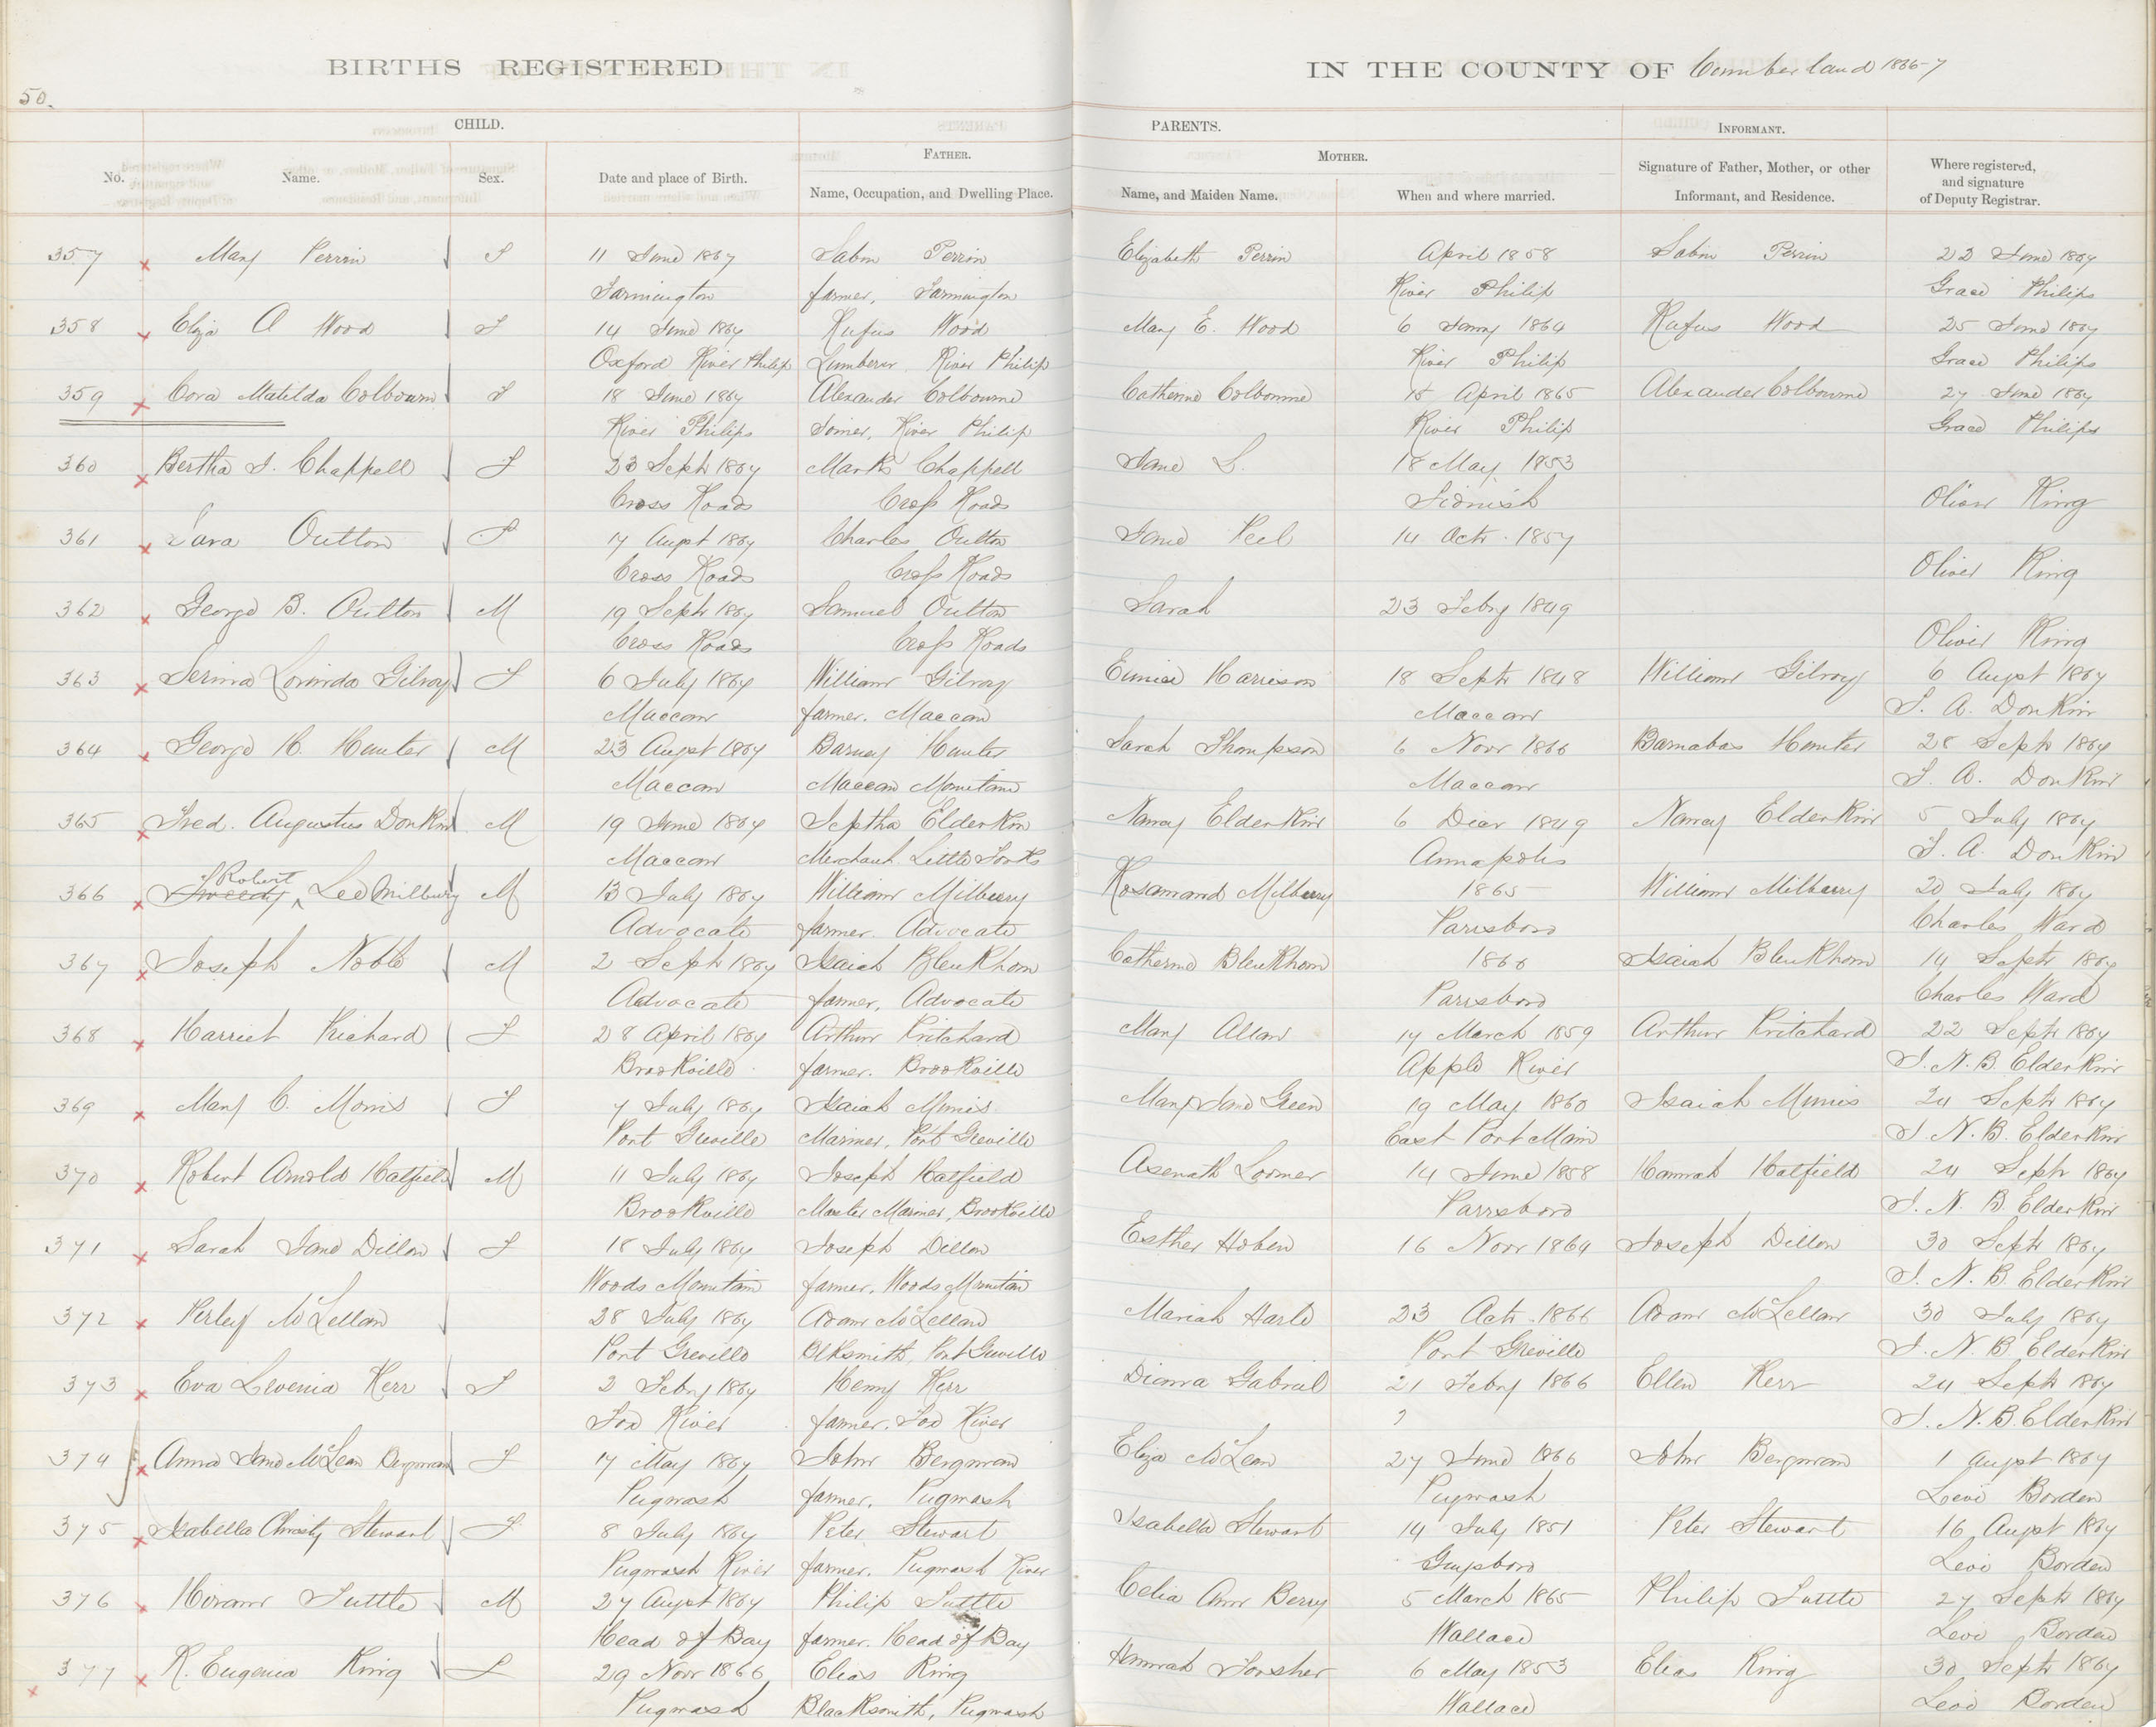 BIRTHS REGISTERED IN THE COUNTY OF Cumberland 1866-7
50.
CHILD. PARENTS. INFORMANT.
FATHER. MOTHER.
No. Name. Sex. Date and place of Birth. Name, Occupation, and Dwelling Place. Name, and Maiden Name. When and where married. Signature of Father, Mother, or other Informant, and Residence. Where registered, and signature of Deputy Registrar.
357 Mary Perrin F 11 June 1867 Sabin Perrin Elizabeth Perrin April 1858 Sabin Perrin 22 June 1867
Farmington farmer, Farmington River Philip Grace Philips
358 Eliza A Wood F 14 June 1867 Rufus Wood Mary E. Wood 6 Jany 1864 Rufus Wood 25 June 1867
Oxford River Philip Lumberer River Philip River Philip Grace Philips
359 Cora Matilda Colbourn F 18 June 1867 Alexander Colbourne Catherine Colbourne 15 April 1865 Alexander Colbourne 27 June 1867
River Philips River Philip River Philip Grace Philips
360 Bertha J. Chappell F 23 Sept 1867 Mark Chappell Jane L. 18 May 1853
Cross Roads Cross Roads Tidnish Oliver King
361 Oulton F 17 Augst 1867 Charles Oulton Jane Peel 14 Octr. 1857
Cross Roads Cross Roads Oliver King
362 George B. Oulton M 19 Septr 1867 Samuel Oulton Sarah 23 Feby 1849
Cross Roads Cross Roads Oliver King
363 Lorinda Gilroy F 6 July 1867 William Gilroy Eunice Harrison 18 Septr 1848 William Gilroy 6 Augst 1867
Maccan farmer. Maccan Maccan F. A. Donkin
364 George H. Hunter M 23 Augst 1867 Barney Hunter Sarah Thompson 6 Novr 1866 Barnabas Hunter 28 Septr 1867
Maccan Maccan Mountain Maccan F. A. Donkin
365 Fred. Augustus Donkin M 19 June 1867 Jeptha Elderkin Nancy Elderkin 6 Decr 1849 Nancy Elderkin 5 July 1867
Maccan Merchant. Little Forks Annapolis F. A. Donkin
Robert
366 Leo Milbury M 13 July 1867 William Milberry Rosamand Milberry 1865 William Milberry 20 July 1867
Advocate farmer. Advocate Parrsboro Charles Ward
367 Joseph Noble M 2 Septr 1867 Isaiah Blenkhorn Catherine Blenkhorn 1866 Isaiah Blenkhorn 14 Septr 1867
Advocate farmer, Advocate Parrsboro Charles Ward
368 Harriet Prichard F 28 April 1867 Arthur Pritchard Mary Allan 17 March 1859 Arthur Pritchard 22 Septr 1867
Brookville farmer. Brookville Apple River J. N. B. Elderkin
369 Mary C. Morris F 7 July 1867 Isaiah Morris Mary Jane Green 19 May 1860 Isaiah Morris 24 Septr 1867
Port Greville Mariner, Port Greville East Port Main J. N. B. Elderkin
370 Robert Arnold Hatfield M 11 July 1867 Joseph Hatfield Asenath Loomer 14 June 1858 Hannah Hatfield 24 Septr 1867
Brookville Master Mariner, Brookville Parrsboro J. N. B. Elderkin
371 Sarah Jane Dillon F 18 July 1867 Joseph Dillon Esther Hoben 16 Novr 1864 Joseph Dillon 30 Septr 1867
Woods Mountain farmer, Woods Mountain J. N. B. Elderkin
372 Perley McLellan 28 July 1867 Adam McLellan Mariah 23 Octr. 1866 Adam McLellan 30 July 1867
Port Greville Blksmith, Port Greville Port Greville J. N. B. Elderkin
373 Eva Levenia Kerr F 2 Feby 1867 Henry Kerr Gabriel 21 Feby 1866 Ellen Kerr 24 Septr 1867
Fox River farmer. Fox River ? J. N. B. Elderkin
374 Anna Jane McLean Bergman F 17 May 1867 John Bergman Eliza McLean 27 June 1866 John Bergman 1 Augst 1867
Pugwash farmer, Pugwash Pugwash Levi Borden
375 Isabella Christy Stewart F 8 July 1867 Peter Stewart Isabella Stewart 14 July 1851 Peter Stewart 16 Augst 1867
Pugwash River farmer. Pugwash River Guysboro Levi Borden
376 Hiram Tuttle M 27 Augst 1867 Philip Tuttle Celia Ann Berry 5 March 1865 Philip Tuttle 27 Septr 1867
Head of Bay farmer. Head of Bay Wallace Levi Borden
377 R. Eugenia King F 29 Novr 1866 Elias King Hannah 6 May 1853 Elias King 30 Septr 1867
Pugwash Blacksmith, Pugwash Wallace Levi Borden